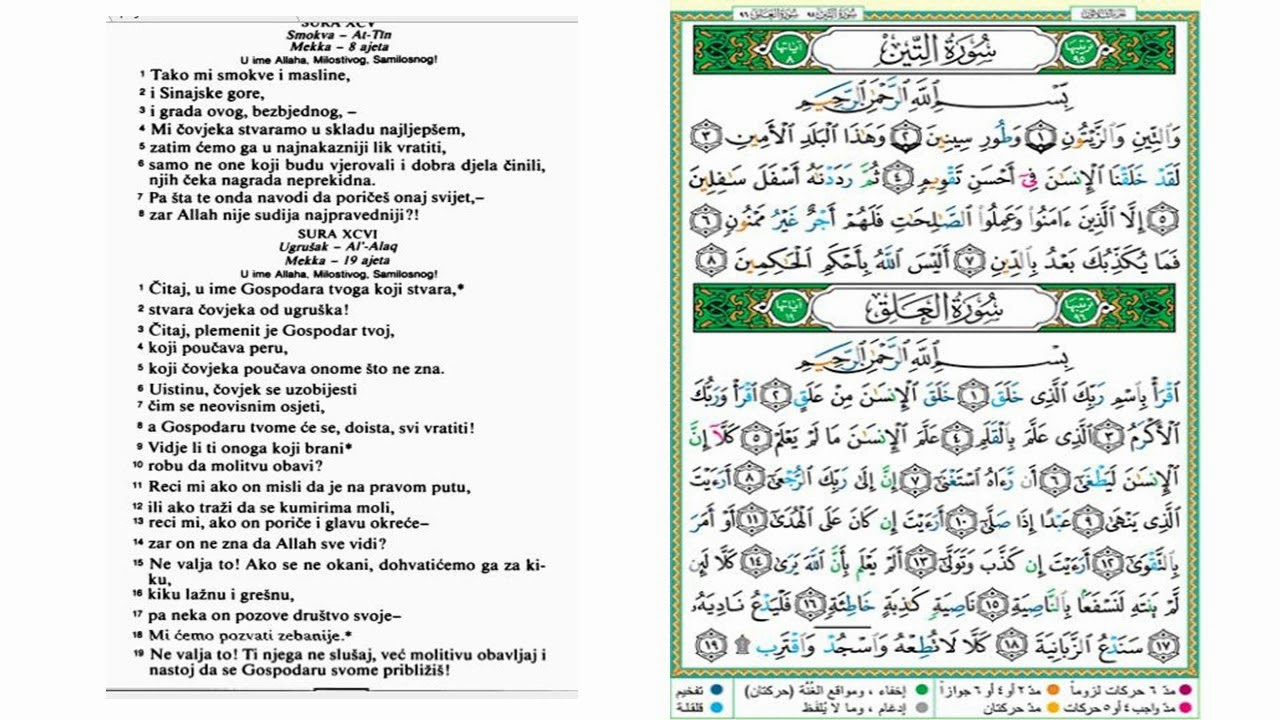 SURA XCV
Smokva – At-Tīn
Mekka – 8 ajeta
U ime Allaha, Milostivog, Samilosnog!
1 Tako mi smokve i masline,
2 i Sinajske gore,
3 i grada ovog, bezbjednog, –
4 Mi čovjeka stvaramo u skladu najljepšem,
5 zatim ćemo ga u najnakazniji lik vratiti,
6 samo ne one koji budu vjerovali i dobra djela činili,
njih čeka nagrada neprekidna.
7 Pa šta te onda navodi da poričeš onaj svijet,–
8 zar Allah nije sudija najpravedniji?!
SURA XCVI
Ugrušak – Al'-Alaq
Mekka – 19 ajeta
U ime Allaha, Milostivog, Samilosnog!
1 Čitaj, u ime Gospodara tvoga koji stvara,*
2 stvara čovjeka od ugruška!
3 Čitaj, plemenit je Gospodar tvoj,
4 koji poučava peru,
5 koji čovjeka poučava onome što ne zna.
6 Uistinu, čovjek se uzobijesti
7 čim se neovisnim osjeti,
8 a Gospodaru tvome će se, doista, svi vratiti!
9 Vidje li ti onoga koji brani*
10 robu da molitvu obavi?
11 Reci mi ako on misli da je na pravom putu,
12 ili ako traži da se kumirima moli,
13 reci mi, ako on poriče i glavu okreće–
14 zar on ne zna da Allah sve vidi?
15 Ne valja to! Ako se ne okani, dohvatićemo ga za ki-
ku,
16 kiku lažnu i grešnu,
17 pa neka on pozove društvo svoje–
18 Mi ćemo pozvati zebanije.*
19 Ne valja to! Ti njega ne slušaj, već molitvu obavljaj i
nastoj da se Gospodaru svome približiš!
الجزء الثلاثون سورة التين ٩٥ سورة العلق ٩٦
ترتيبها ٩٥ سُورَةُ التِّينِ آياتها ٨
بِسْمِ اللَّهِ الرَّحْمَٰنِ الرَّحِيمِ
وَالتِّينِ وَالزَّيْتُونِ ١ وَطُورِ سِينِينَ ٢ وَهَٰذَا الْبَلَدِ الْأَمِينِ ٣
لَقَدْ خَلَقْنَا الْإِنسَٰنَ فِي أَحْسَنِ تَقْوِيمٍ ٤ ثُمَّ رَدَدْنَٰهُ أَسْفَلَ سَٰفِلِينَ
٥ إِلَّا الَّذِينَ ءَامَنُوا وَعَمِلُوا الصَّٰلِحَٰتِ فَلَهُمْ أَجْرٌ غَيْرُ مَمْنُونٍ ٦
فَمَا يُكَذِّبُكَ بَعْدُ بِالدِّينِ ٧ أَلَيْسَ اللَّهُ بِأَحْكَمِ الْحَٰكِمِينَ ٨
ترتيبها ٩٦ سُورَةُ الْعَلَقِ آياتها ١٩
بِسْمِ اللَّهِ الرَّحْمَٰنِ الرَّحِيمِ
اقْرَأْ بِاسْمِ رَبِّكَ الَّذِي خَلَقَ ١ خَلَقَ الْإِنسَٰنَ مِنْ عَلَقٍ ٢ اقْرَأْ وَرَبُّكَ
الْأَكْرَمُ ٣ الَّذِي عَلَّمَ بِالْقَلَمِ ٤ عَلَّمَ الْإِنسَٰنَ مَا لَمْ يَعْلَمْ ٥ كَلَّا إِنَّ
الْإِنسَٰنَ لَيَطْغَىٰ ٦ أَن رَّءَاهُ اسْتَغْنَىٰ ٧ إِنَّ إِلَىٰ رَبِّكَ الرُّجْعَىٰ ٨ أَرَءَيْتَ
الَّذِي يَنْهَىٰ ٩ عَبْدًا إِذَا صَلَّىٰ ١٠ أَرَءَيْتَ إِن كَانَ عَلَى الْهُدَىٰ ١١ أَوْ أَمَرَ
بِالتَّقْوَىٰ ١٢ أَرَءَيْتَ إِن كَذَّبَ وَتَوَلَّىٰ ١٣ أَلَمْ يَعْلَم بِأَنَّ اللَّهَ يَرَىٰ ١٤ كَلَّا لَئِن
لَّمْ يَنتَهِ لَنَسْفَعًا بِالنَّاصِيَةِ ١٥ نَاصِيَةٍ كَٰذِبَةٍ خَاطِئَةٍ ١٦ فَلْيَدْعُ نَادِيَهُ
١٧ سَنَدْعُ الزَّبَانِيَةَ ١٨ كَلَّا لَا تُطِعْهُ وَاسْجُدْ وَاقْتَرِب ۩ ١٩
مدّ ٦ حركات لزوماً مدّ ٢ أو ٤ أو ٦ جوازاً إخفاء ، ومواقع الغُنَّة (حركتان) تفخيم
مدّ واجب ٤ أو ٥ حركات مدّ حركتان إدغام ، وما لا يُلفَظ قلقلة